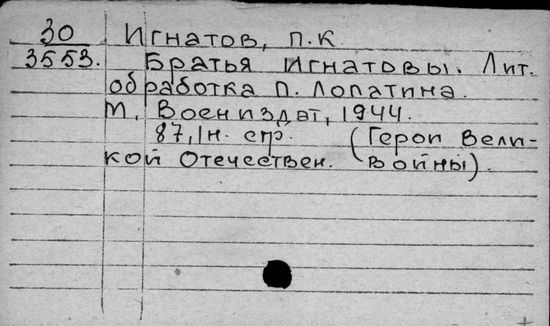 30 Игнатов, П.К
3553. Братья Игнатовы. Лит.
обработка П. Лопатина.
М, Воениздат, 1944.
87, 1н. стр. (Герои Вели-
кой Отечествен. войны).